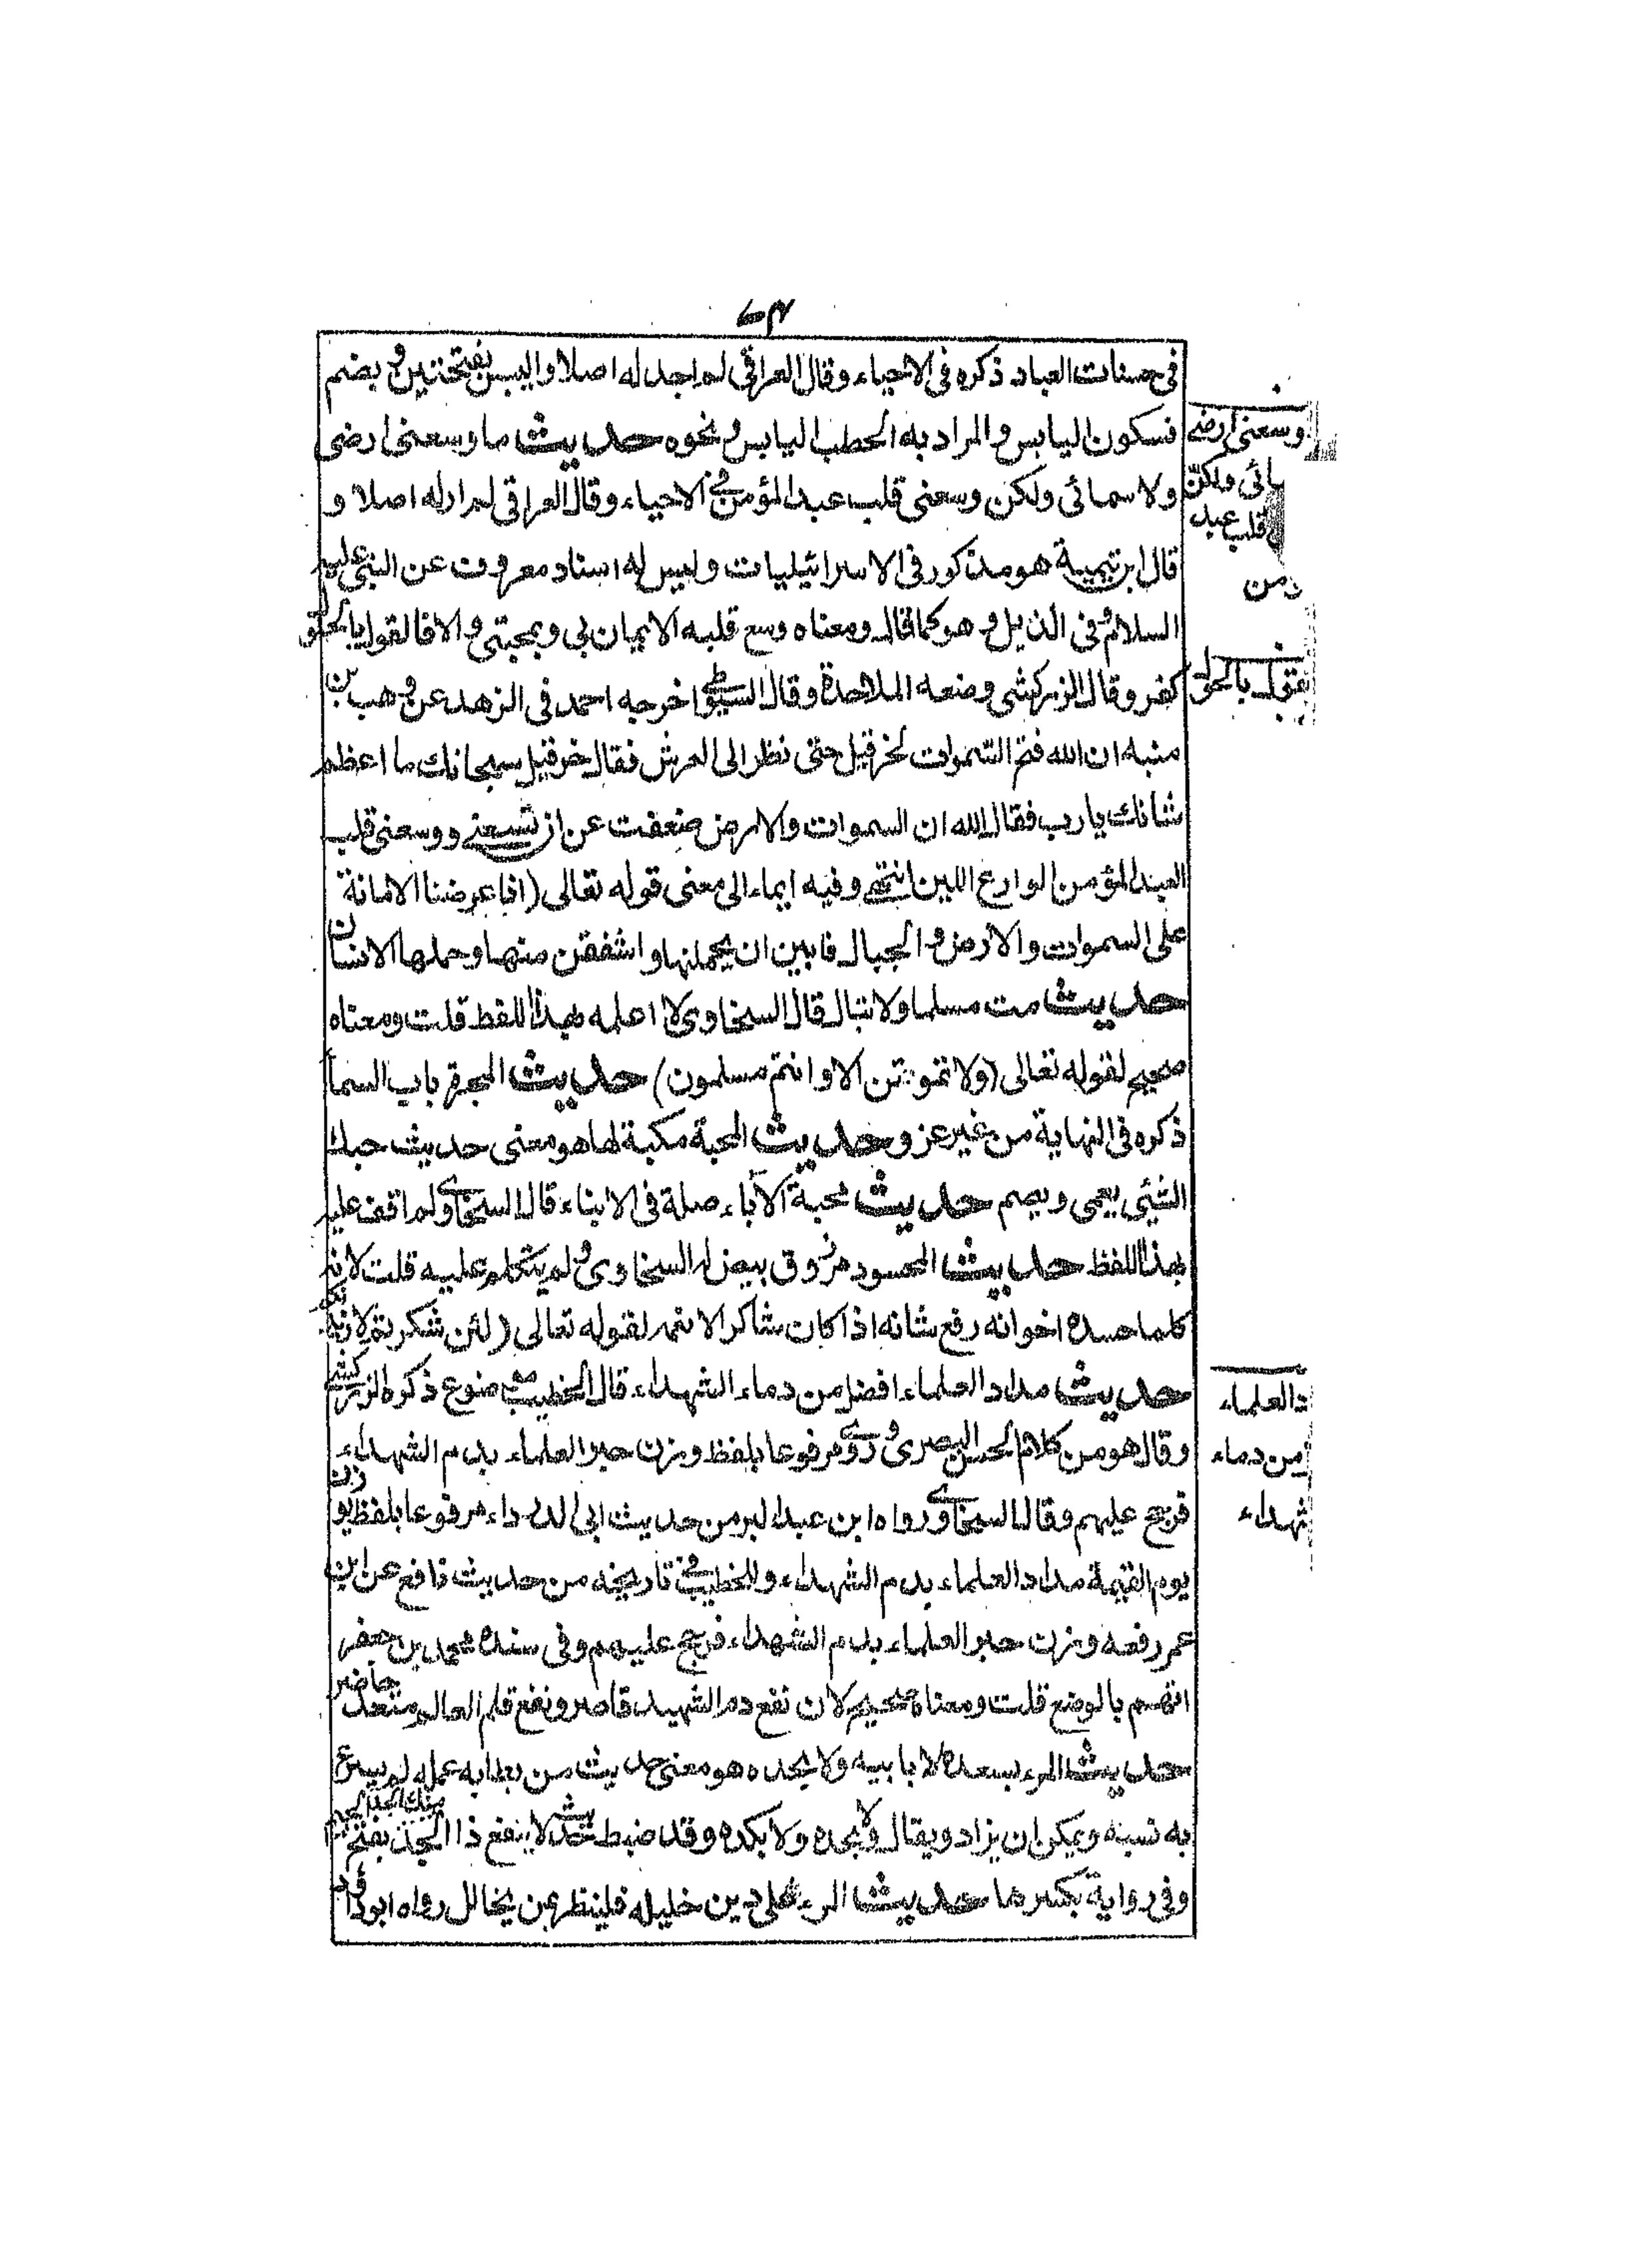 ٧٣
في حسنات العباد ذكره في الاحياء وقال العراقي لم اجد له اصلا واليبس بفتحتين وبضم
فسكون اليابس والمراد به الحطب اليابس ونحوه حديث ما وسعنى ارضى
ولا سمائى ولكن وسعنى قلب عبد المؤمن في الاحياء وقال العراقي لم ار له اصلا و
قال ابن تيمية هو مذكور في الاسرائيليات وليس له اسناد معروف عن النبي عليه
السلام وفى الذيل وهو كما قال ومعناه وسع قلبه الايمان بي وبمحبتي والا فالقول بالحلول
كفر وقال الزركشى وضعه الملاحدة وقال السيوطي اخرجه احمد فى الزهد عن وهب بن
منبه ان الله فتح السموات لحزقيل حتى نظر الى العرش فقال حزقيل سبحانك ما اعظم
شانك يا رب فقال الله ان السموات والارض ضعفت عن ان تسعنى ووسعنى قلب
العبد المؤمن الوارع اللين انتهى وفيه ايماء الى معنى قوله تعالى (انا عرضنا الامانة
على السموات والارض والجبال فابين ان يحملنها واشفقن منها وحملها الانسان
حديث مت مسلما ولا تبال قال السخاوى لا اعلمه بهذا اللفظ قلت ومعناه
صحيح لقوله تعالى (ولا تموتن الا وانتم مسلمون) حديث المجرة باب السماء
ذكره فى النهاية من غير عزو حديث المحبة مكبة لها هو معنى حديث حبك
الشيئى يعمى ويصم حديث محبة الآباء صلة فى الابناء قال السخاوى ولم اقف عليه
بهذا اللفظ حديث المحسود مرزوق بيض له السخاوى ولم يتكلم عليه قلت لانه
كلما حسده اخوانه رفع شانه اذا كان شاكرا لانعمه لقوله تعالى (لئن شكرتم لازيدنكم
حديث مداد العلماء افضل من دماء الشهداء قال الخطيب موضوع ذكره الزركشى
وقال هو من كلام الحسن البصرى وروى مرفوعا بلفظ وزن حبر العلماء بدم الشهداء
فرجح عليهم وقال السخاوى رواه ابن عبد البر من حديث ابى الدرداء مرفوعا بلفظ يوزن
يوم القيمة مداد العلماء بدم الشهداء وللخطيب في تاريخه من حديث نافع عن ابن
عمر رفعه وزن حبر العلماء بدم الشهداء فرجح عليهم وفى سنده محمد بن جعفر
اتهم بالوضع قلت ومعناه صحيح لان نفع دم الشهيد قاصر ونفع قلم العالم متعد حاضر
حديث المرء بسعده لا بابيه ولا بجده هو معنى حديث من بطا به عمله لم يسرع
به نسبه ويمكن ان يزاد ويقال ولا بجده ولا بكده وقد ضبط حديث لا ينفع ذا الجد منك الجد بفتح
وفى رواية بكسرها حديث المرء على دين خليله فلينظر بمن يخالل رواه ابو داود
وسعنى ارضى
مائى ولكن
قلب عبد
من
فقوله بالحلول
العلماء
من دماء
شهداء